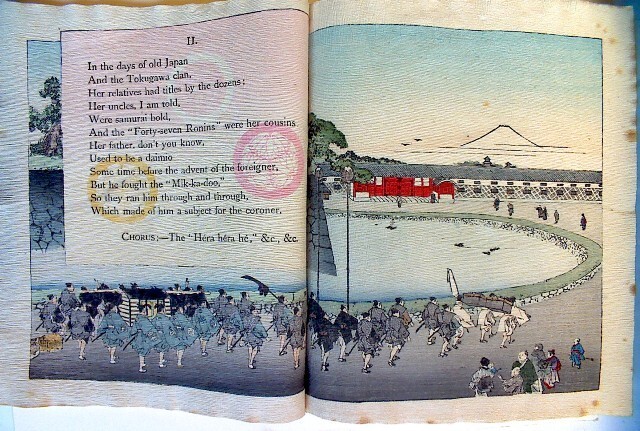 II.
In the days of old Japan
And the Tokugawa clan,
Her relatives had titles by the dozens:
Her uncles, I am told,
Were samurai bold,
And the "Forty-seven Ronins" were her cousins
Her father, don't you know,
Used to be a daimio
Some time before the advent of the foreigner,
But he fought the "Mik-ka-doo,"
So they ran him through and through,
Which made of him a subject for the coroner,
CHORUS:—The "Héra héra hé," &c., &c.